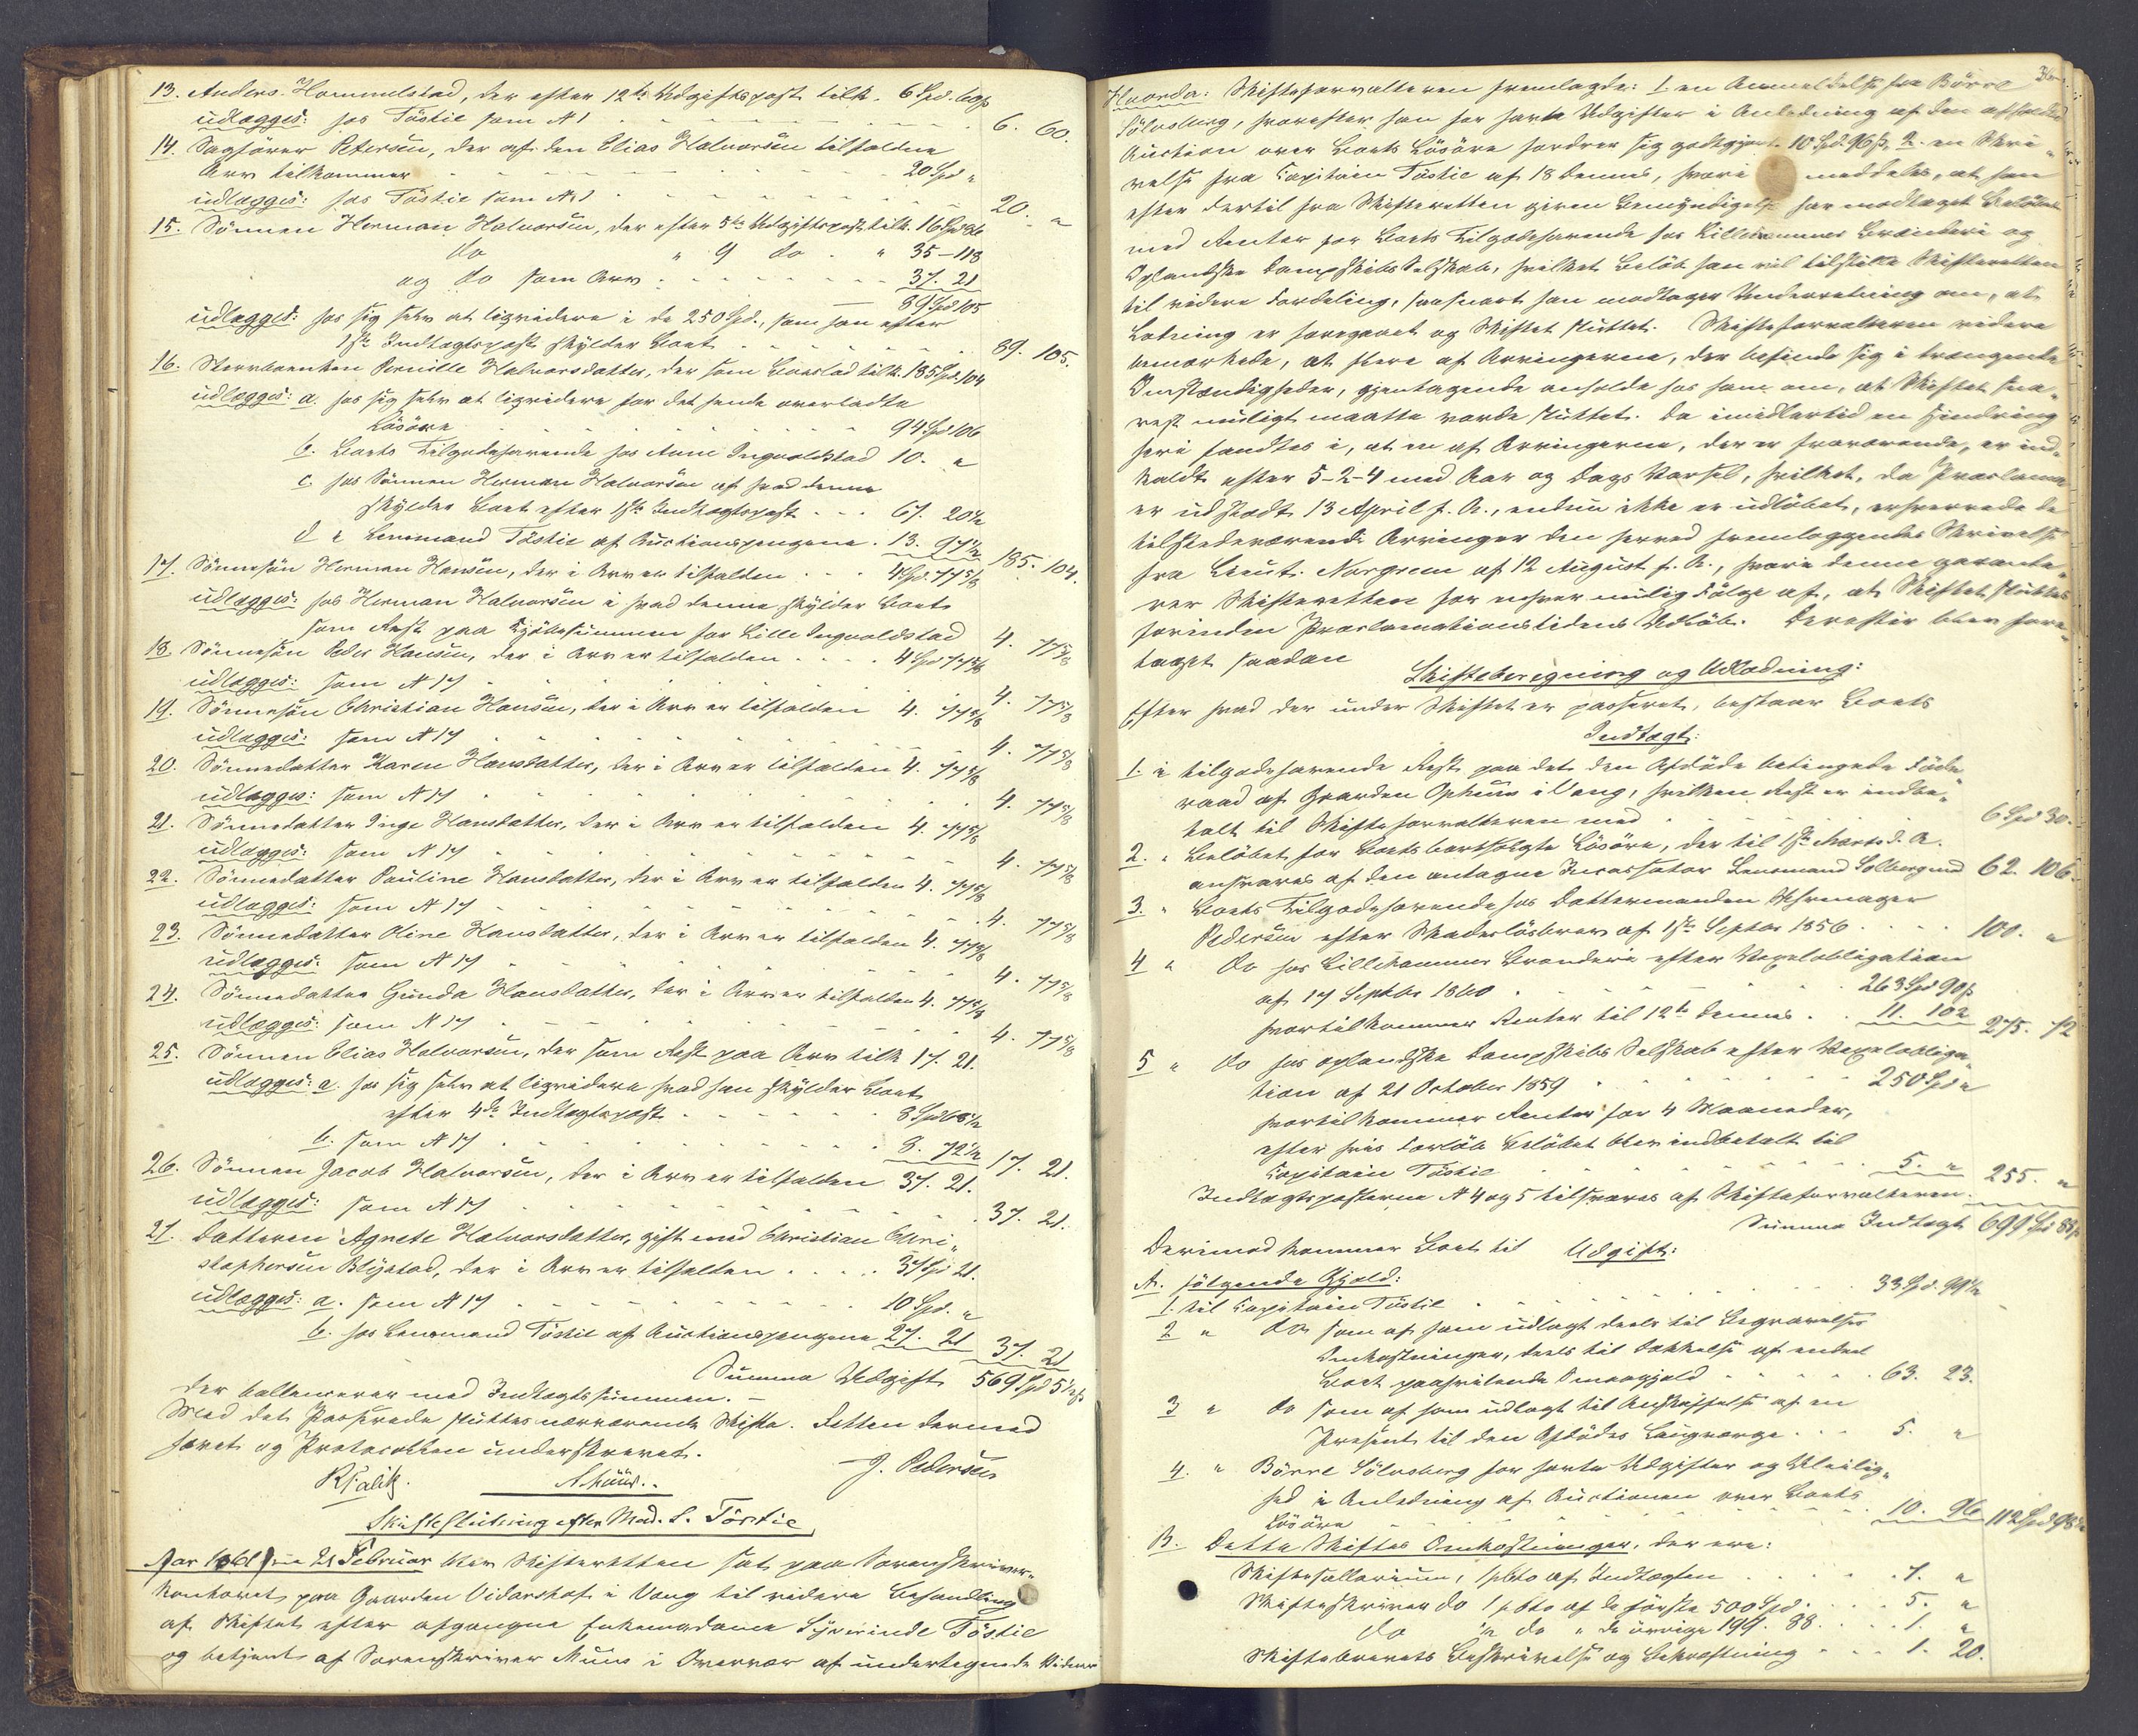 13. Anders Hommelstad, der efter 12te Udgiftspost tilk. 6 Spd. 60 ß
udlægges: hos Töstie som N 1 6. 60.
14. Sagfører Petersen, der af den Elias Halvorsen tilfaldne
Arv tilkommer 20 Spd "
udlægges: hos Töstie som N 1 20. "
15. Sönnen Herman Halvorsen, der efter 5te Udgiftspost tilk. 16 Spd 86
do " 9 do " 35-118
og do som Arv 37. 21
89 Spd 105
udlægges: hos sig selv at liqvidere i de 250 Spd., som han efter
1ste Indtægtspost skylder Boet 89. 105.
16. Stervboenken Pernille Halvorsdatter, der som Boeslod tilk. 185 Spd. 104
udlægges: a. hos sig selv at liqvidere for det hende overladte
Lösöre 94 Spd 106
b. Boets Tilgodehavende hos Anne Ingvoldstad 10. "
c. hos Sönnen Herman Halvorsen af hvad denne
skylder Boet efter 1ste Indtægtspost 67. 20½
d " Lensmand Töstie af Auctionspengene 13. 97½ 185. 104.
17. Sönnesön Herman Hansen, der i Arv er tilfalden 4 Spd. 77 5/8
udlægges: hos Herman Halvorsen i hvad denne skylder Boet
som Rest paa Kjöbesummen for Lille Ingvoldstad 4. 77 5/8
18. Sönnesön Peder Hansen, der i Arv er tilfalden 4 Spd 77 5/8
udlægges: som N 17 4. 77 5/8
19. Sönnesön Christian Hansen, der i Arv er tilfalden 4. 77 5/8
udlægges: som N 17 4. 77 5/8
20. Sönnedatter Karen Hansdatter, der i Arv er tilfalden 4. 77 5/8
udlægges: som N 17 4. 77 5/8
21. Sönnedatter Inge Hansdatter, der i Arv er tilfalden 4. 77 5/8
udlægges: som N 17 4. 77 5/8
22. Sönnedatter Pauline Hansdatter, der i Arv er tilfalden 4. 77 5/8
udlægges: som N 17 4. 77 5/8
23. Sönnedatter Oline Hansdatter, der i Arv er tilfalden 4. 77 5/8
udlægges: som N 17 4. 77 5/8
24. Sönnedatter Gunda Hansdatter, der i Arv er tilfalden 4. 77 5/8
udlægges: som N 17 4. 77 5/8
25. Sönnen Elias Halvorsen, der som Rest paa Arv tilk 17. 21.
udlægges: a. hos sig selv at liqvidere hvad han skylder Boet
efter 4de Indtægtspost 8 Spd 68½
b. som N 17 8. 72½ 17. 21.
26. Sönnen Jacob Halvorsen, der i Arv er tilfalden 37. 21.
udlægges: som N 17 37. 21.
27. Datteren Agnete Halvorsdatter, gift med Christian Chri-
stophersen Blystad, der i Arv er tilfalden 37 Spd 21.
udlægges: a. som N 17 10 Spd. "
b. hos Lensmand Töstie af Auctionspengene 27. 21 37. 21
Summa Udgift 569 Spd 5½ ß
der ballancerer med Indtægtssummen. –
Med det Passerede sluttes nærværende Skifte. Retten dermed
hævet og Protocollen underskrevet.
J. Pedersen
Skifteslutning efter Mad. S. Töstie
Aar 1861 den 21 Februar blev Skifteretten sat paa Sorenskriver-
kontoret paa Gaarden Vidarshof i Vang til videre Behandling
af Skiftet efter afgangne Enkemadame Syverinde Töstie
og betjent af Sorenskriver Muus i Overvær af undertegnede Vidner
Hvorda: Skifteforvalteren fremlagde: 1. en Anmeldelse fra Börre
Sölvsberg, hvorefter han for havte Udgifter i Anledning af den afholdte
Auction over Boets Lösöre fordrer sig godtgjort 10 Spd. 96 ß, 2. en Skri-
velse fra Capitain Töstie af 18 dennes, hvori meddeles, at han
efter dertil fra Skifteretten given Bemyndigelse har modtaget Belöbet
med Renter for Boets Tilgodehavende hos Lillehammer Brænderi og
Oplandske Dampskibs Selskab, hvilket Belöb han vil tilstille Skifteretten
til videre Fordeling, saasnart han modtager Underretning om, at
Lodning er foregaaet og Skiftet sluttet. Skifteforvalteren videre
bemærkede, at flere af Arvingerne, der befinde sig i trængende
Omstændigheder, gjentagende anholdt hos ham om, at Skiftet sna-
rest muligt maatte vorde sluttet. Da imidlertid en Hindring
heri fandtes i, at en af Arvingerne, der er fraværende, er ind-
kaldt efter 5-2-4 med Aar og Dags Varsel, hvilket, da Proclama
er udstedt 13 April f. A., endnu ikke er udlöbet, erhvervede de
tilstedeværende Arvinger den herved fremlæggendes Skrivelse
fra Lieut. Norgren af 12 August f. A., hvori denne garante-
rer Skifteretten for enhver mulig Fölge af, at Skiftet sluttes
forinden Proclamationstidens Udlöb. Derefter blev fore-
taget saadan
Skifteberegning og Udlodning:
Efter hvad der under Skiftet er passeret, bestaar Boets
Indtægt:
1. i tilgodehavende Rest paa det den Afdöde betingede Föde-
raad af Gaarden Ophuus i Vang, hvilken Rest er indbe-
talt til Skifteforvalteren med 6 Spd 30.
2. " Belöbet for Boets bortsolgte Lösöre, der til 1ste Marts d. A.
ansvares af den antagne Incassator Lensmand Solberg med 62. 106.
3. " Boets Tilgodehavende hos Dattermanden Uhrmager
Pedersen efter Skadeslösbrev af 1ste Septbr 1856 100. "
4 " do hos Lillehammer Brænderi efter Vexelobligation
af 17 Septbr 1860 263 Spd 90 ß
hvortil kommer Renter til 12te dennes 11. 102 275. 72
5 " do hos oplandske Dampskibs Selskab efter Vexelobliga-
tion af 21 October 1859 250 Spd "
hvortil kommer Renter for 4 Maaneder,
efter hvis Forlöb Belöbet blev indbetalt til
Capitain Töstie 5. " 255. "
Indtægtsposterne N 4 og 5 tilsvares af Skifteforvalteren.
Summa Indtægt 699 Spd 88 ß
Derimod kommer Boet til Udgift:
A. fölgende Gjæld:
1. til Capitain Töstie 33 Spd. 99½
2 " do som af ham udlagt deels til Begravelses
Omkostninger, deels til Dækkelse af endeel
Boet paahvilende Smaagjæld 63. 23.
3 " do som af ham udlagt til Anskaffelse af en
Present til den Afdödes Laugværge 5. "
4. " Börre Sölvsberg for havte Udgifter og Uleilig-
hed i Anledning af Auctionen over Boets
Lösöre 10. 96 112 Spd 98½
B. Dette Skiftes Omkostninger, der ere:
Skiftesallarium, 1 pCto af Indtægten 7. "
Skifteskriver do 1 pCto af de förste 500 Spd. 5. "
do ½ do " de övrige 199. 88. 1. "
Skiftebrevets Beskrivelse og Bekræftning 1. 20.